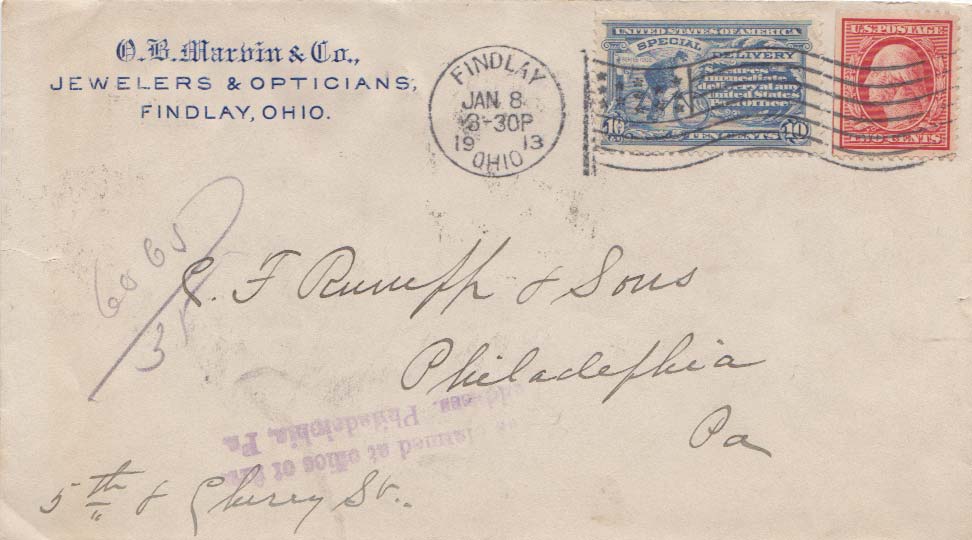 O. B. Marvin & Co.,
JEWELERS & OPTICIANS,
FINDLAY, OHIO.
FINDLAY
JAN 8
8-30P
19 13
OHIO
UNITED STATES OF AMERICA
SPECIAL DELIVERY
Secures
immediate
delivery at any
United States
Post office
10 TEN CENTS 10
U.S. POSTAGE
TWO CENTS
6065
3
C. F. Rumpp & Sons
Philadelphia
Pa
5th & Cherry St.
claimed at office of
Philadelphia, Pa.